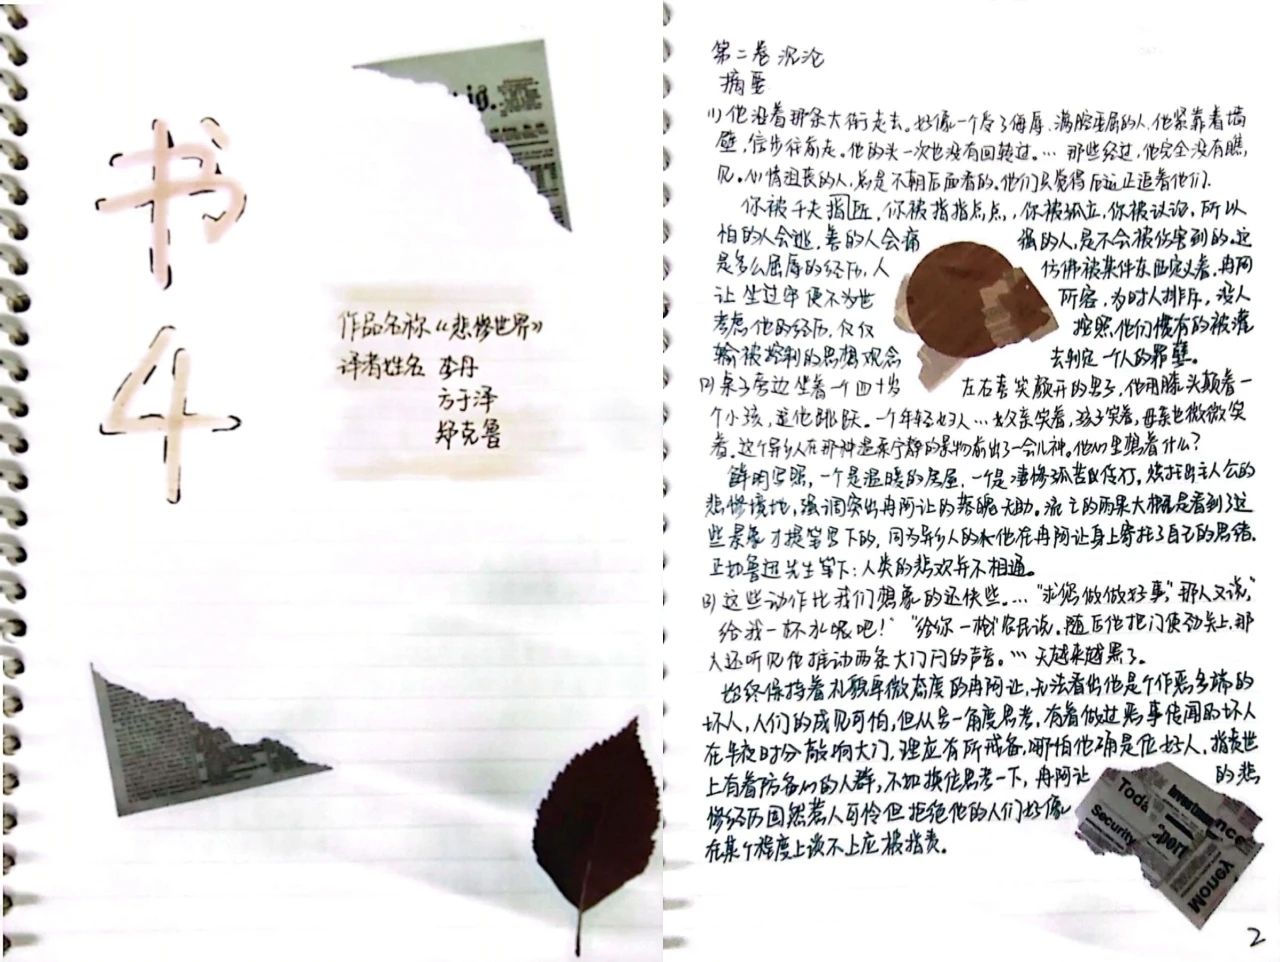 书
4
作品名称《悲惨世界》
译者姓名 李丹
方于译
郑克鲁
第二卷 沉沦
摘要
(1) 他沿着那条大街走去。好像一个受了侮辱、满腔委屈的人，他紧靠着墙
壁，信步往前走。他的头一次也没有回转过。… 那些经过，他完全没有瞧
见。心情沮丧的人，总是不朝后面看的。他们只觉得厄运正追着他们.
你被千夫指，你被指指点点，你被孤立，你被议论，所以
怕的人会逃，善的人会痛 强的人，是不会被伤害到的。这
是多么屈辱的经历，人 仿佛被某件东西定义着，冉阿
让 坐过牢 便不为世 所容，为时人排斥，没人
考虑他的经历，仅仅 按照他们惯有的被灌
输被控制的思想观念 去判定一个人的罪孽。
(2) 桌子旁边坐着一个四十岁 左右喜笑颜开的男子，他用膝头颠着一
个小孩，逗他跳跃。一个年轻妇人…父亲笑着，孩子笑着，母亲也微微笑
着。这个异乡人在那种温柔宁静的景物前出了一会儿神。他心里想着什么？
鲜明写照，一个是温暖的房屋，一个是凄惨孤苦伶仃。烘托出主人公的
悲惨境地，强调突出冉阿让的落魄无助。流亡的雨果大概是看到了这
些景象才提笔写下的，同为异乡人的他在冉阿让身上寄托了自己的思绪。
正如鲁迅先生笔下：人类的悲欢并不相通。
(3) 这些动作比我们想象的还快些。…“求您做做好事，”那人又说，“
给我一杯水喝吧！” “给你一枪！”农民说。随后他把门使劲关上，那
人还听见他推动两条大门闩的声音。… 天越来越黑了。
始终保持着礼貌卑微态度的冉阿让，无法看出他是个作恶多端的
坏人，人们的成见可怕，但从另一角度思考，有着做过恶事传闻的坏人
在半夜时分敲响大门，理应有所戒备，哪怕他确是位好人，指责世
上有着防备心的人群，不如换位思考一下，冉阿让 的悲
惨经历固然惹人可怜但拒绝他的人们好像
在某个程度上谈不上应被指责。
Today
Security
Investment
port
Money
2